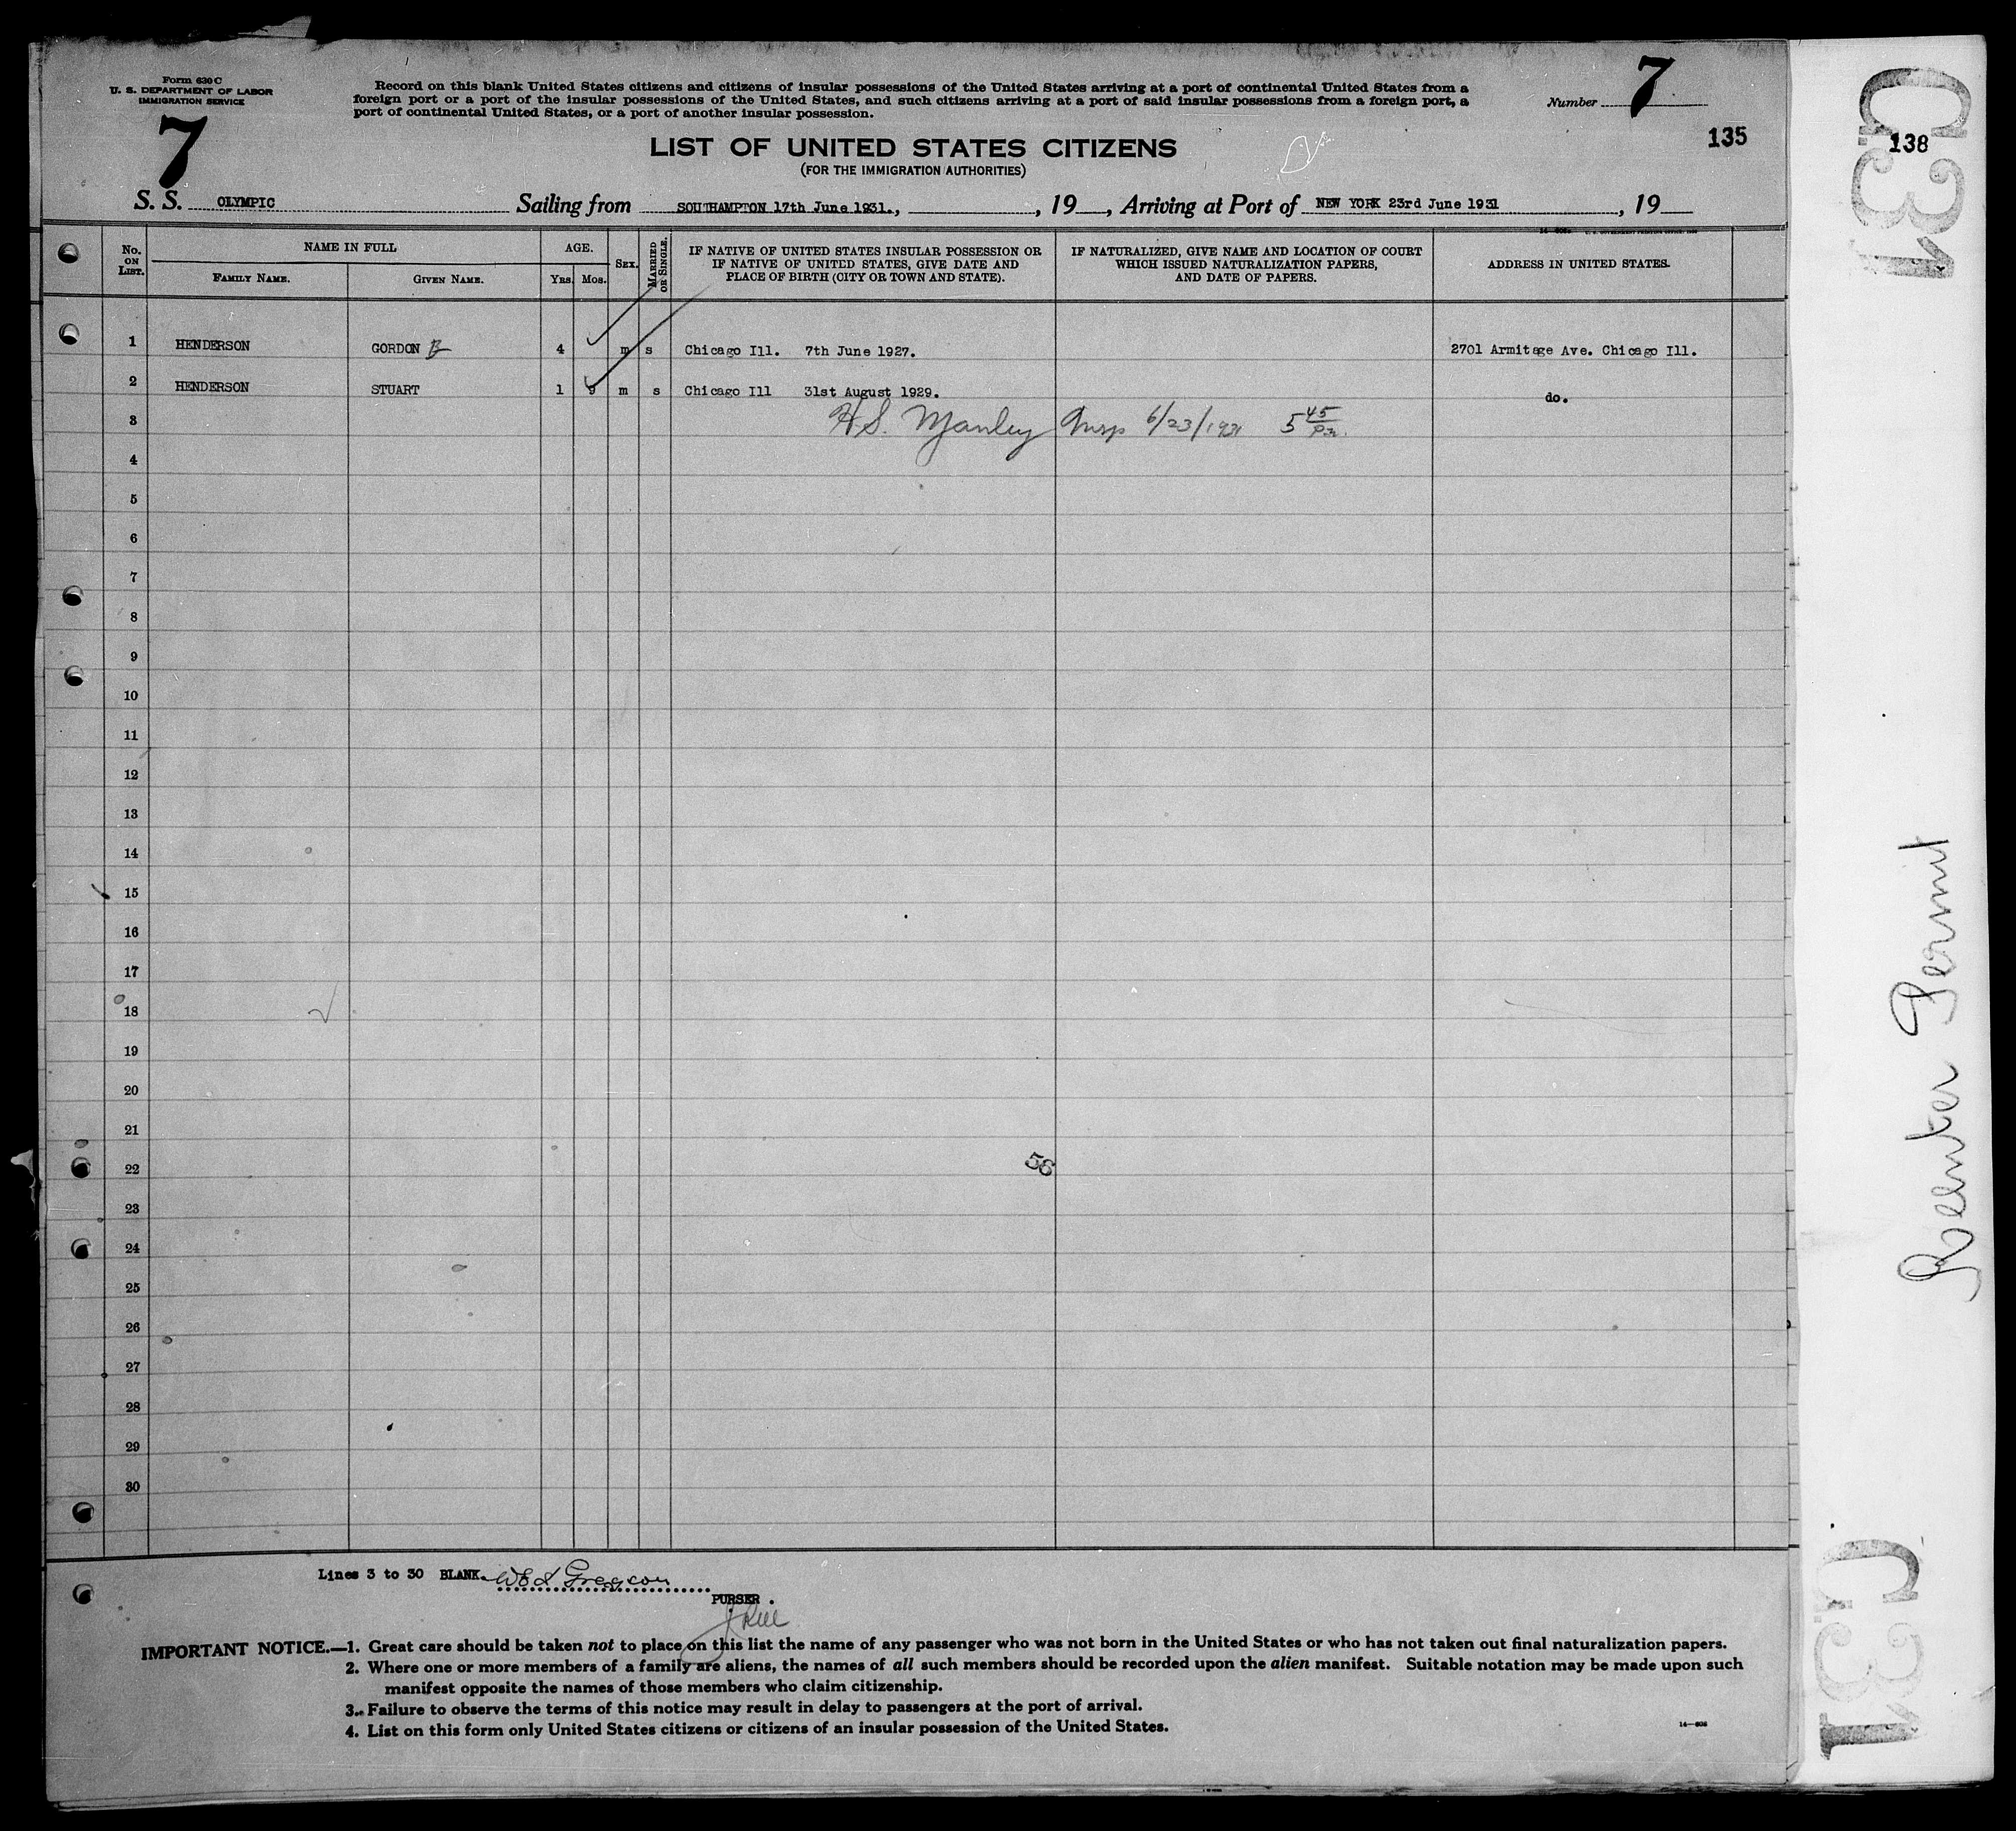 Form 630 C
U. S. DEPARTMENT OF LABOR
IMMIGRATION SERVICE
7
Record on this blank United States citizens and citizens of insular possessions of the United States arriving at a port of continental United States from a
foreign port or a port of the insular possessions of the United States, and such citizens arriving at a port of said insular possessions from a foreign port, a
port of continental United States, or a port of another insular possession.
Number 7
135
138
C31
LIST OF UNITED STATES CITIZENS
(FOR THE IMMIGRATION AUTHORITIES)
S. S. OLYMPIC Sailing from SOUTHAMPTON 17th June 1931., , 19 , Arriving at Port of NEW YORK 23rd June 1931 , 19
No. ON LIST.
NAME IN FULL
FAMILY NAME.
GIVEN NAME.
AGE.
YRS. MOS.
SEX.
MARRIED OR SINGLE.
IF NATIVE OF UNITED STATES INSULAR POSSESSION OR
IF NATIVE OF UNITED STATES, GIVE DATE AND
PLACE OF BIRTH (CITY OR TOWN AND STATE).
IF NATURALIZED, GIVE NAME AND LOCATION OF COURT
WHICH ISSUED NATURALIZATION PAPERS,
AND DATE OF PAPERS.
ADDRESS IN UNITED STATES.
1 HENDERSON GORDON B 4 m s Chicago Ill. 7th June 1927. 2701 Armitage Ave. Chicago Ill.
2 HENDERSON STUART 1 9 m s Chicago Ill 31st August 1929. do.
3 H.S. Manley Insp 6/23/1931 5 45 P.m.
4
5
6
7
8
9
10
11
12
13
14
15
16
17
18
19
20
21
22 56
23
24
25
26
27
28
29
30
Reenter Permit
Lines 3 to 30 BLANK. Gregson
PURSER.
IMPORTANT NOTICE.—1. Great care should be taken not to place on this list the name of any passenger who was not born in the United States or who has not taken out final naturalization papers.
2. Where one or more members of a family are aliens, the names of all such members should be recorded upon the alien manifest. Suitable notation may be made upon such
manifest opposite the names of those members who claim citizenship.
3. Failure to observe the terms of this notice may result in delay to passengers at the port of arrival.
4. List on this form only United States citizens or citizens of an insular possession of the United States.
14—606
C31